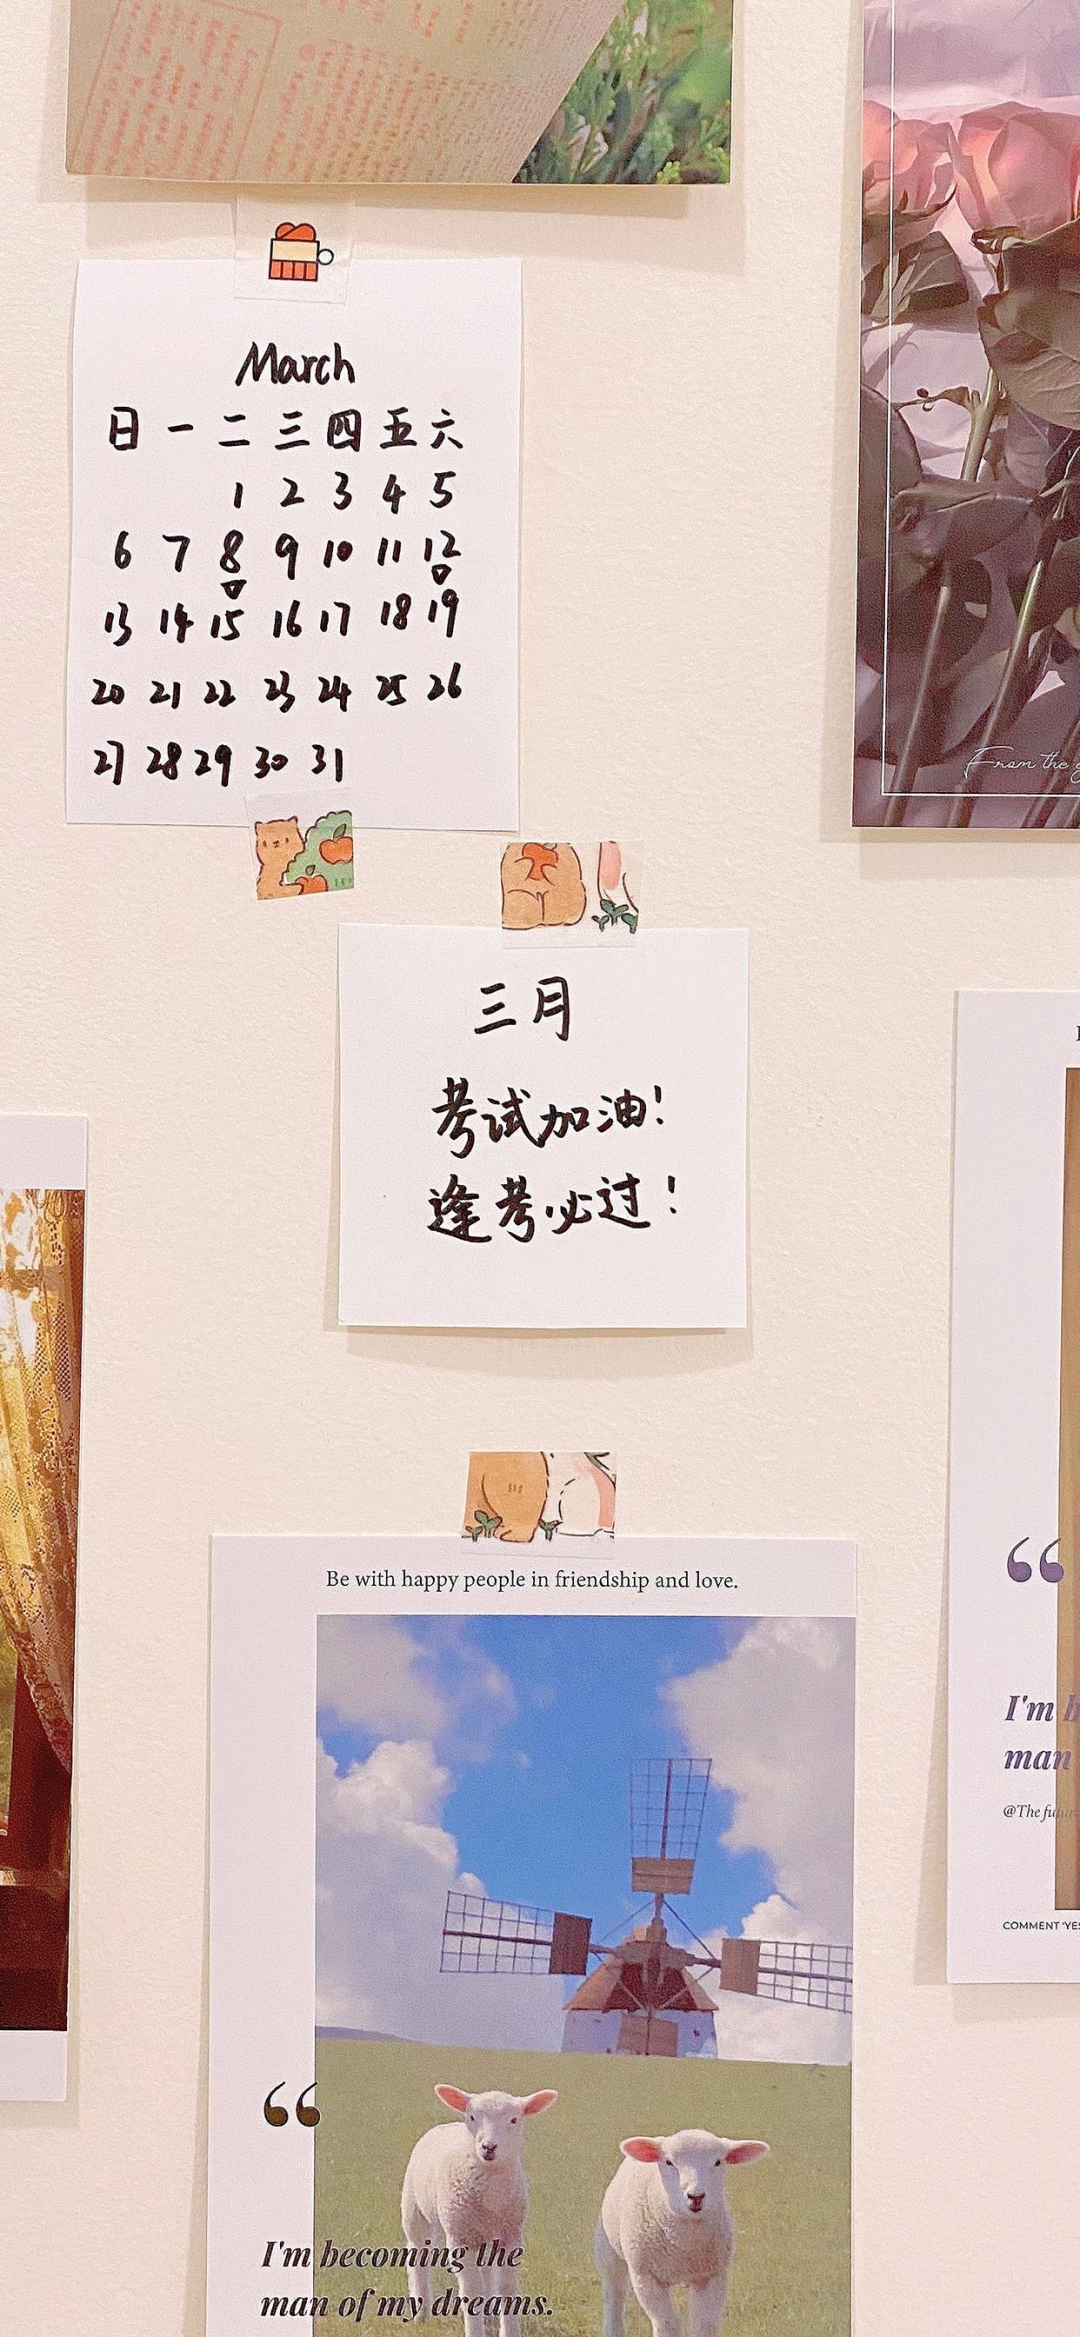 March
日 一 二 三 四 五 六
1 2 3 4 5
6 7 8 9 10 11 12
13 14 15 16 17 18 19
20 21 22 23 24 25 26
27 28 29 30 31
From the
三月
考试加油!
逢考必过!
Be with happy people in friendship and love.
“
I'm becoming the
man of my dreams.
“
I'm
man
@The
COMMENT